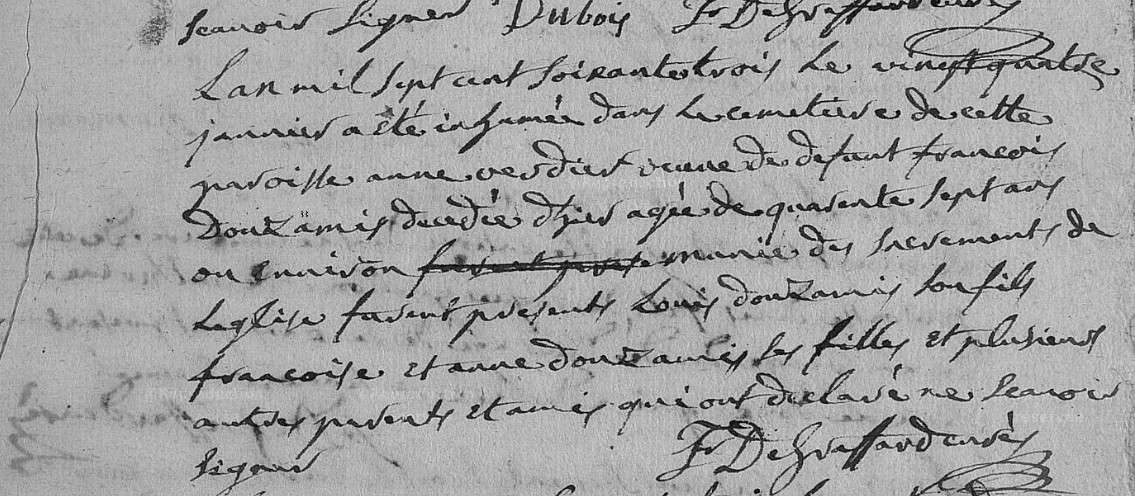 scavoir signer Dubois
Lan mil sept cent soixante trois le vingt quatre
janvier a eté inhumée dans le cemetiere de cette
paroisse anne verdier veuve de defunt françois
Douzamis decedée d'hier agée de quarente sept ans
ou environ furent prese munie des sacrements de
Leglise furent presents Louis douzamis son fils
françoise et anne douzamis ses filles et plusieurs
autres parents et amis qui ont declaré ne scavoir
signer